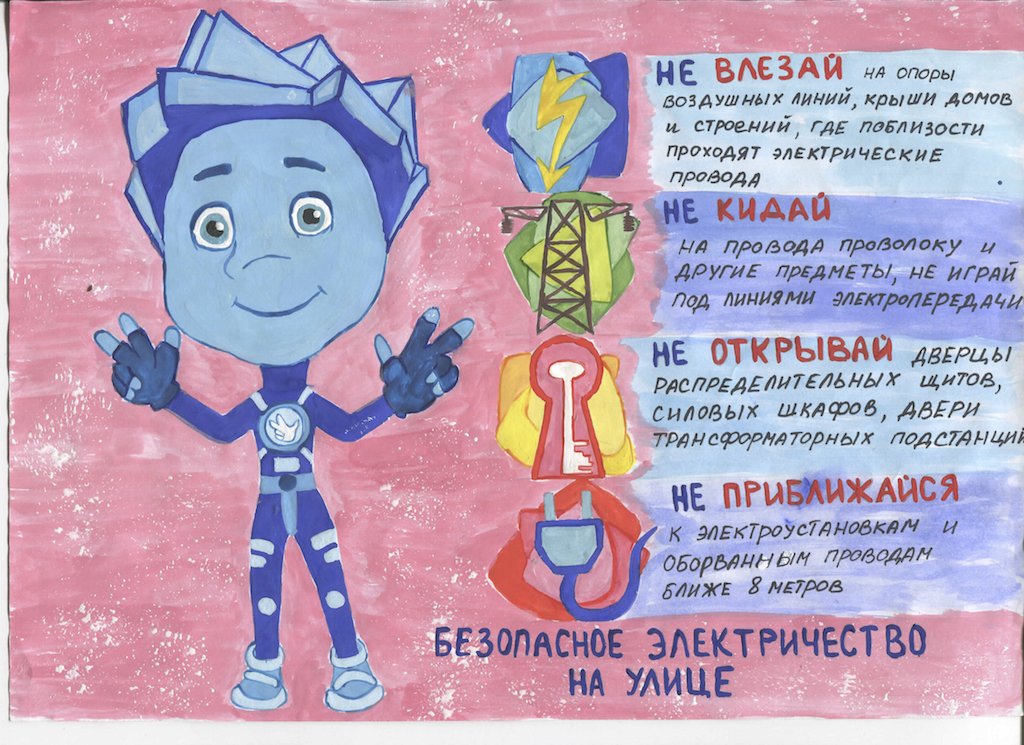 НЕ ВЛЕЗАЙ НА ОПОРЫ
ВОЗДУШНЫХ ЛИНИЙ, КРЫШИ ДОМОВ
И СТРОЕНИЙ, ГДЕ ПОБЛИЗОСТИ
ПРОХОДЯТ ЭЛЕКТРИЧЕСКИЕ
ПРОВОДА
НЕ КИДАЙ
НА ПРОВОДА ПРОВОЛОКУ И
ДРУГИЕ ПРЕДМЕТЫ, НЕ ИГРАЙ
ПОД ЛИНИЯМИ ЭЛЕКТРОПЕРЕДАЧИ
НЕ ОТКРЫВАЙ ДВЕРЦЫ
РАСПРЕДЕЛИТЕЛЬНЫХ ЩИТОВ,
СИЛОВЫХ ШКАФОВ, ДВЕРИ
ТРАНСФОРМАТОРНЫХ ПОДСТАНЦИЙ
НЕ ПРИБЛИЖАЙСЯ
К ЭЛЕКТРОУСТАНОВКАМ И
ОБОРВАННЫМ ПРОВОДАМ
БЛИЖЕ 8 МЕТРОВ
БЕЗОПАСНОЕ ЭЛЕКТРИЧЕСТВО
НА УЛИЦЕ